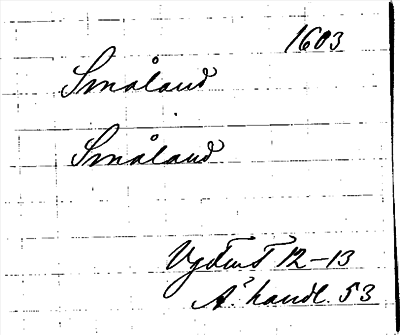 1603
Småland
Småland
12-13
handl. 53